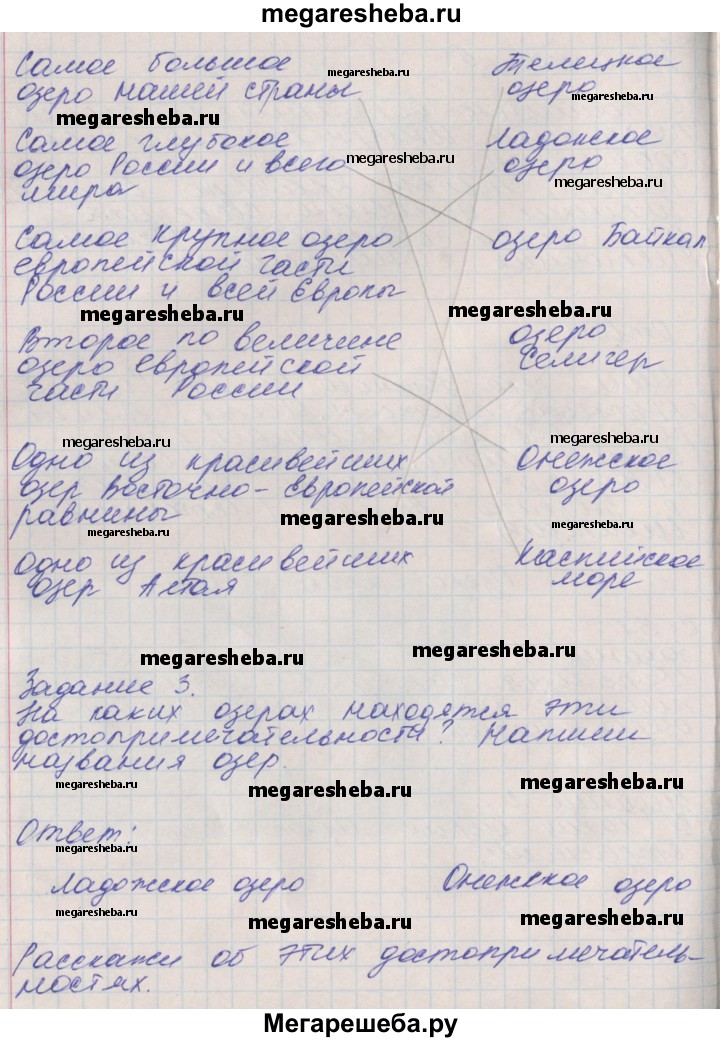 megaresheba.ru
Самое большое
озеро нашей страны
megaresheba.ru
Телецкое
озеро
megaresheba.ru
megaresheba.ru
Самое глубокое
озеро России и всего
мира
megaresheba.ru
Ладожское
озеро
megaresheba.ru
Самое крупное озеро
европейской части
России и всей Европы
озеро Байкал
megaresheba.ru
megaresheba.ru
Второе по величине
озеро европейской
части России
озеро
Селигер
megaresheba.ru
megaresheba.ru
Одно из красивейших
озер Восточно-Европейской
равнины
Онежское
озеро
megaresheba.ru
megaresheba.ru
megaresheba.ru
Одно из красивейших
озер Алтая
Каспийское
море
megaresheba.ru
megaresheba.ru
Задание 3.
На каких озерах находятся эти
достопримечательности? Напиши
названия озер.
megaresheba.ru
megaresheba.ru
megaresheba.ru
Ответ:
megaresheba.ru
Ладожское озеро
Онежское озеро
megaresheba.ru
megaresheba.ru
megaresheba.ru
Расскажи об этих достопримечатель-
ностях.
Мегарешеба.ру